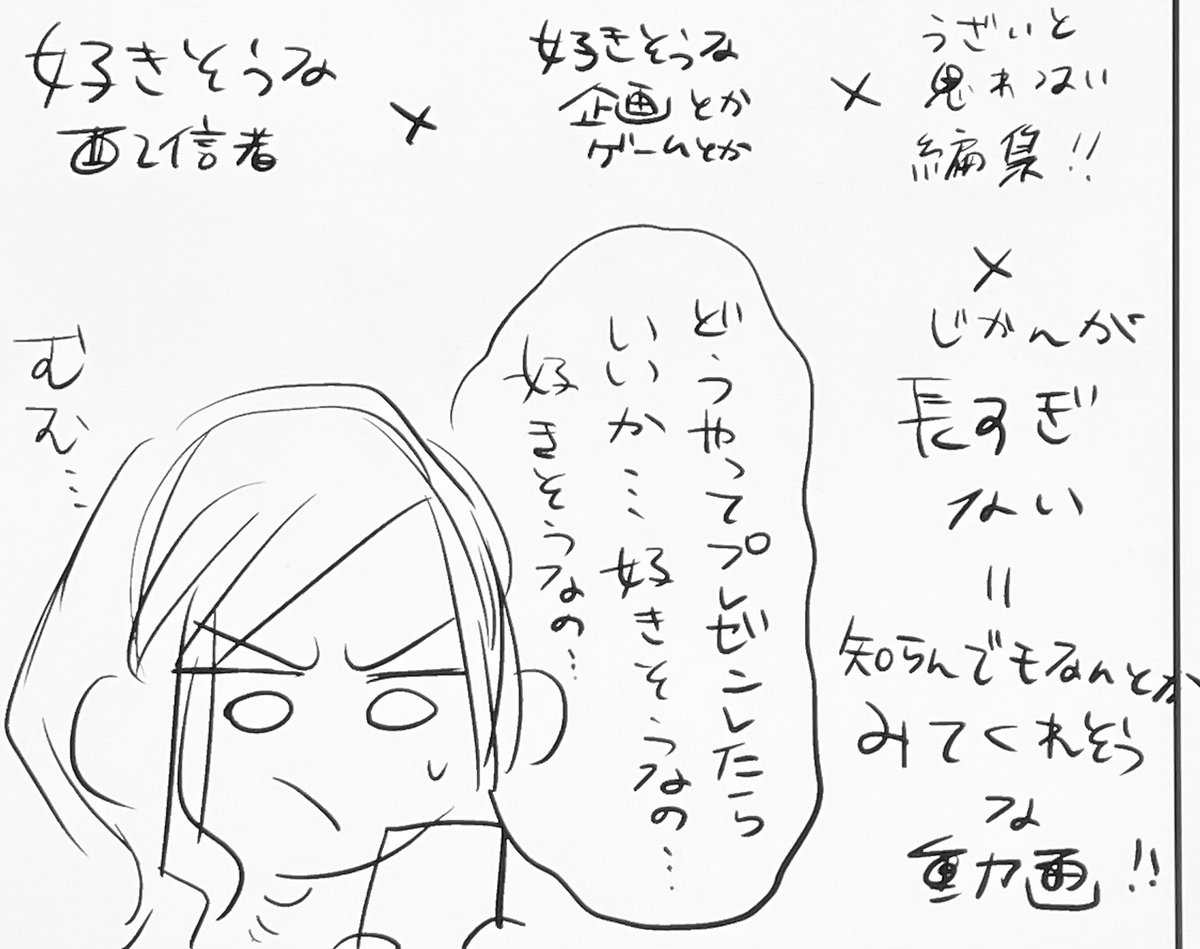 好きそうな
配信者
×
好きそうな
企画とか
ゲームとか
×
うざいと
思わない
編集!!
×
じかんが
長すぎ
ない
=
知らんでもなんとか
みてくれそう
な
動画!!
どうやってプレゼンしたら
いいか…好きそうなの…
好きそうなの…
むむ…